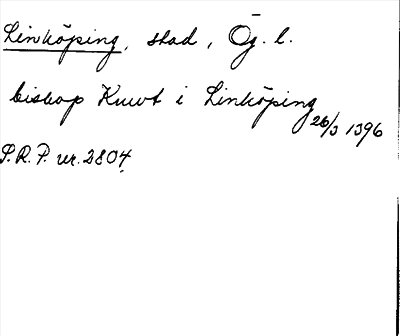 Linköping, stad, Ög. l.
biskop Knut i Linköping 26/3 1396
S.R.P. nr. 2804